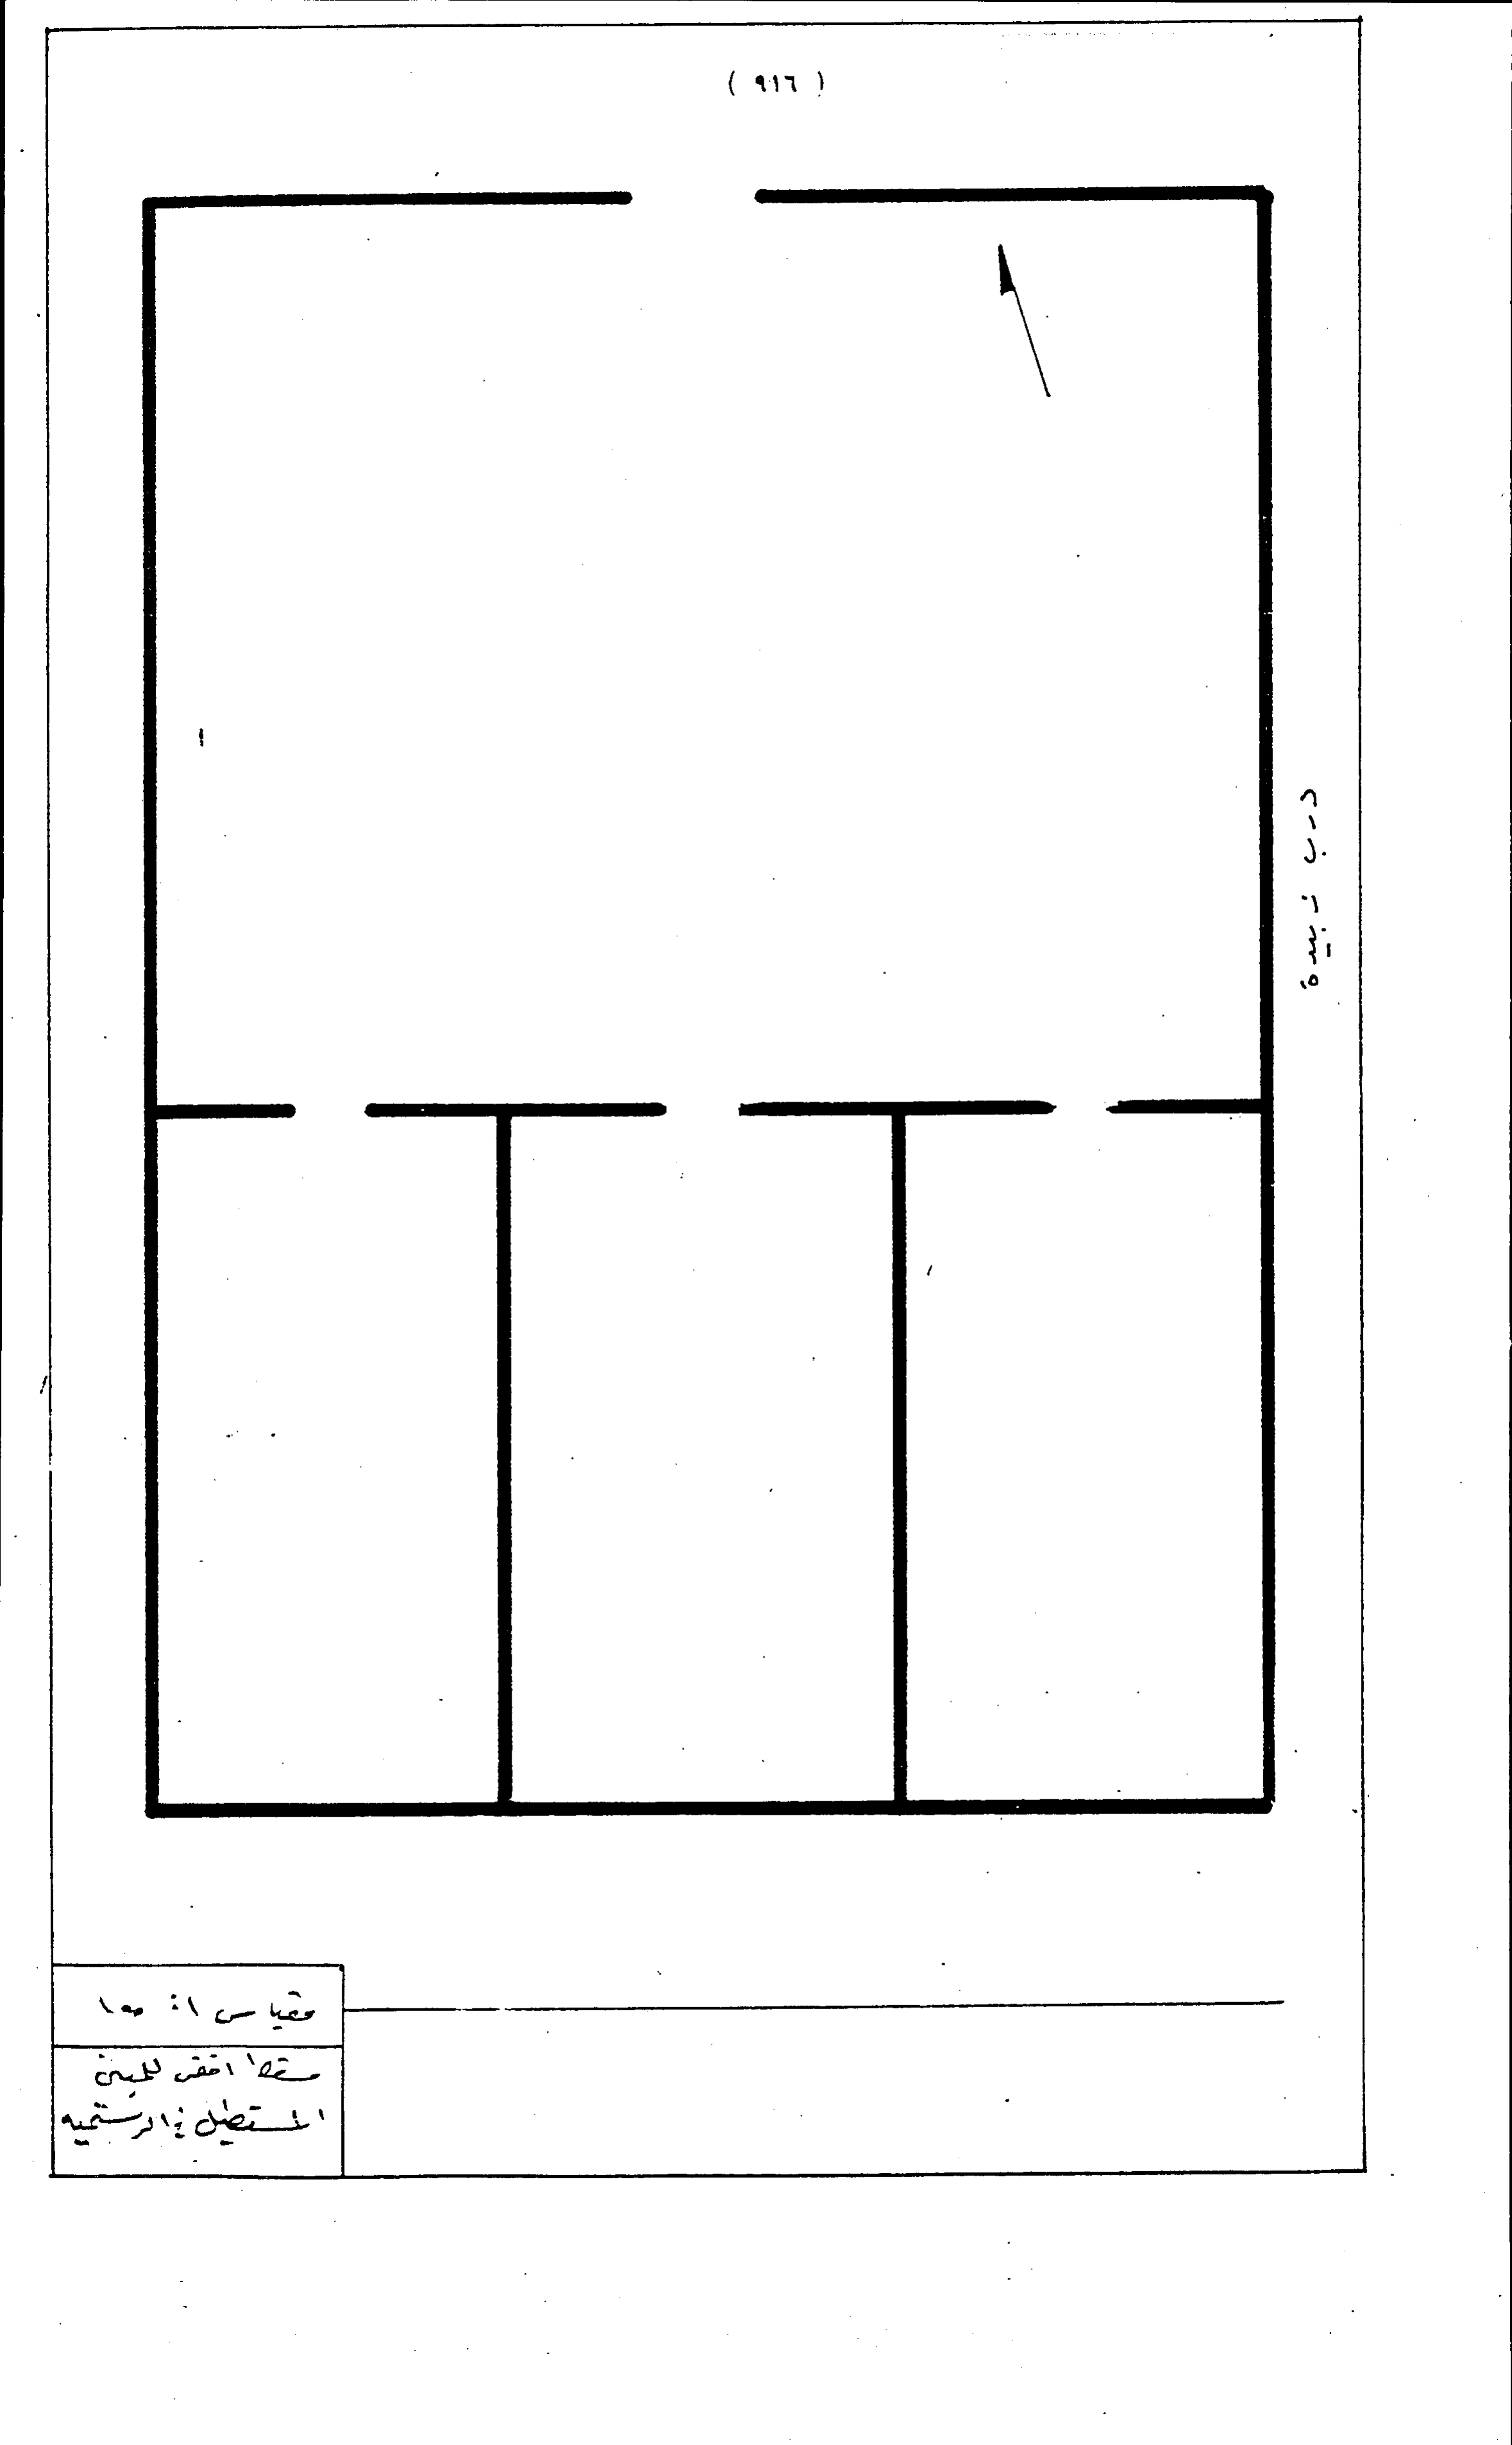 ( ٩١٦ )
درب زبيدة
مقياس ١ : ١٠٠
مسقط افقى للمبنى
المستطيل فى الرستميه